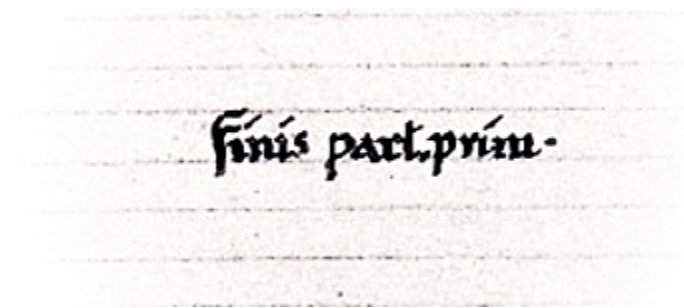 Finis part. prim.